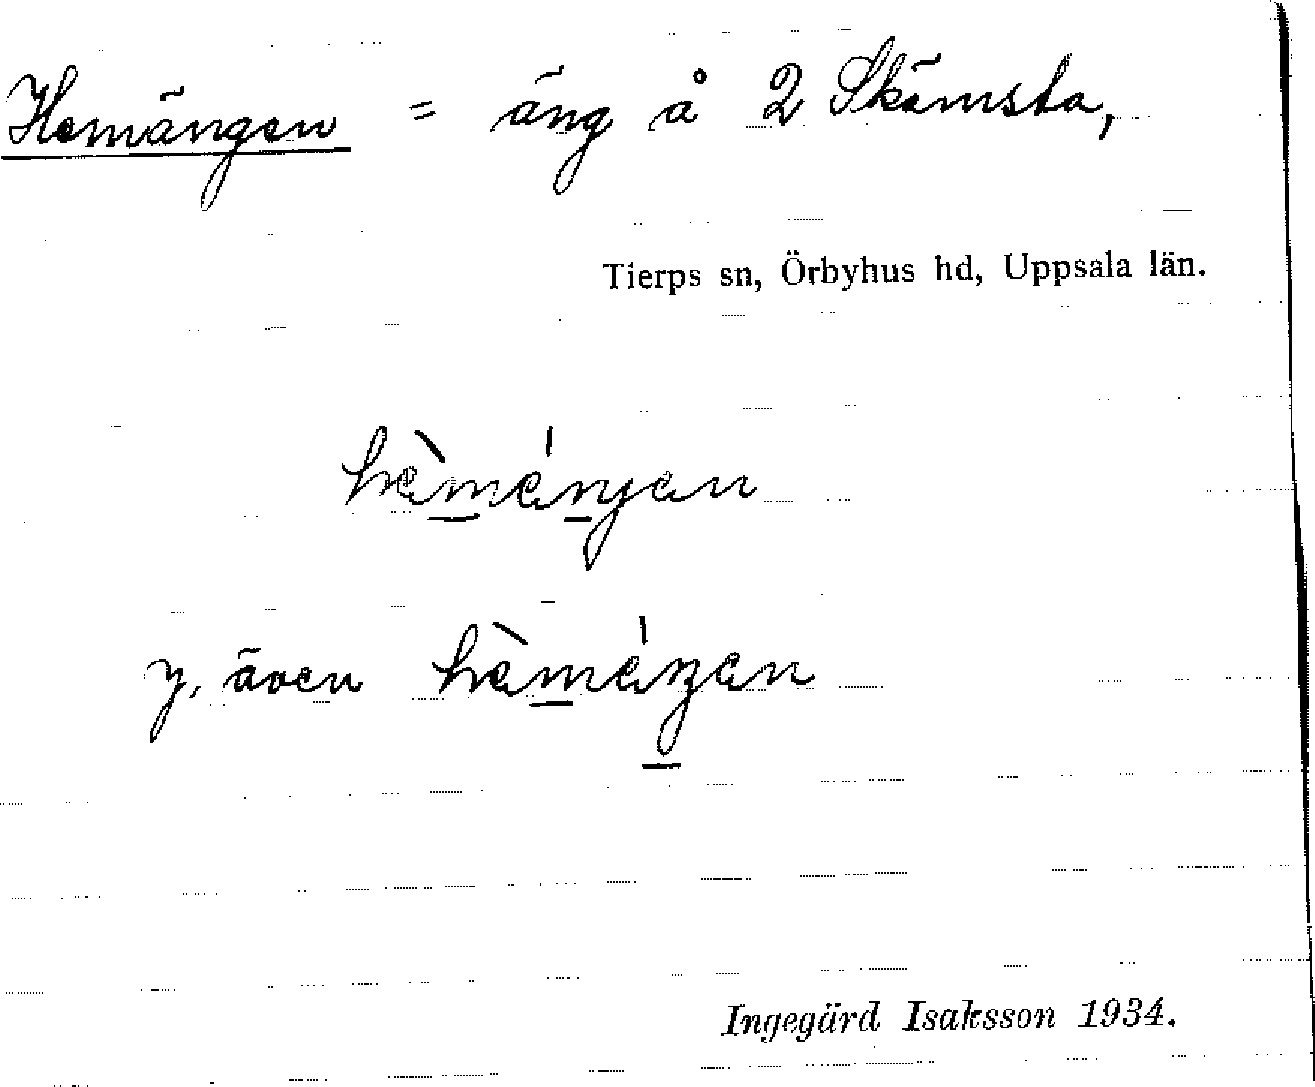 Hemängen = äng å 2 Skämsta,
Tierps sn, Örbyhus hd, Uppsala län.
y, även
Ingegärd Isaksson 1934.